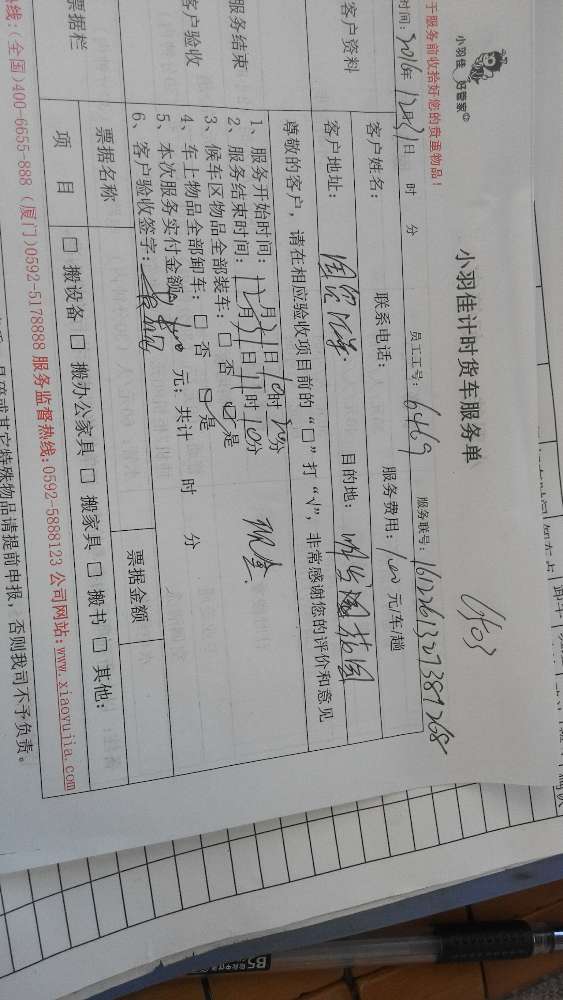 小羽佳 好管家
于服务前收拾好您的贵重物品!
小羽佳计时货车服务单
4503
时间: 2016年12月31日 时 分 员工工号: 6469 服务联号: 161226132738926
客户资料
客户姓名: 联系电话: 服务费用: 100 元/车/趟
客户地址: 目的地:
尊敬的客户,请在相应验收项目前的“□”打“√”,非常感谢您的评价和意见
服务结束
客户验收
1、服务开始时间: 12月31日10时20分
2、服务结束时间: 12月31日11时10分
现金
3、候车区物品全部装车: □ 否 □ 是
4、车上物品全部卸车: □ 否 □ 是
5、本次服务实付金额 元; 共计 时 分
6、客户验收签字:
票据栏
票据名称 票据金额
项 目 □ 搬设备 □ 搬办公家具 □ 搬家具 □ 搬书 □ 其他:
热线:(全国)400-6655-888 (厦门)0592-5178888 服务监督热线:0592-5888123 公司网站:www.xiaoyujia.com
或其它特殊物品请提前申报,否则我司不予负责。